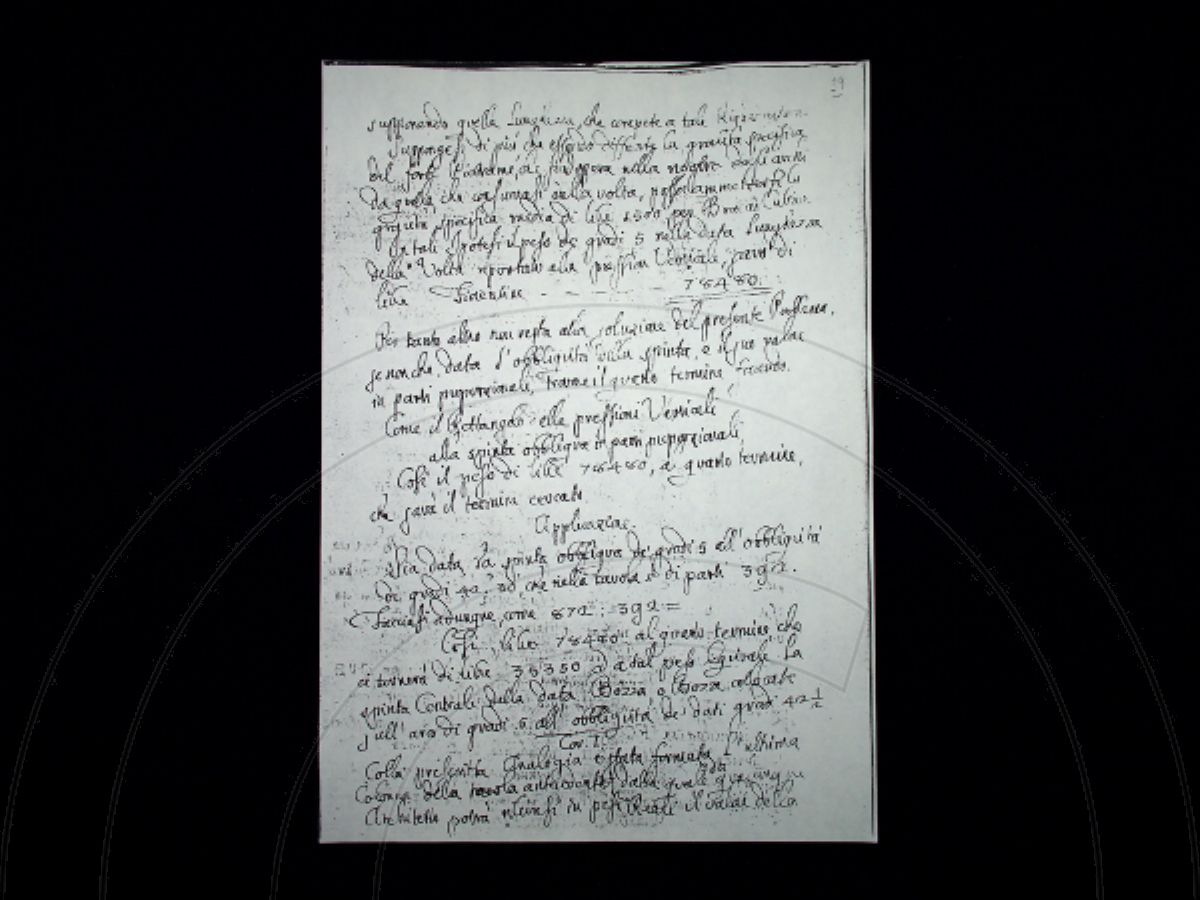 19
supponendo quella Lunghezza, che compete a tale
Suppongasi di più che essendo differiz la gravità specifica
del forte
da quella, che
gravità specifica media di libe 1500 per Braccio Cubico
In tali Ipotesi il peso de gradi 5 nella data Lunghezza
della Volta riportato alla pression Verticale, sarà di
libre Fiorentine - - - 78480.
Per tanto altro non resta alla soluzione del presente Problema,
se non che, data l'obbliquità della spinta, e il suo valore
in parti proporzionali, trovare il quarto termine facendo.
Come il Rettangolo delle pressioni Verticali
alla spinta obbliqua in parti proporzionali
Così il peso di libe 78480, a quarto termine,
che sarà il termine cercato
Applicazione.
Sia data la spinta obbliqua de' gradi 5 all'obbliquità
di gradi 42. 30', che nella tavola è di parti 392.
Facciasi adunque, come 872 : 392 =
Così, libe 78480 al quarto termine che
ci tornerà di libe 35350 ed a tal peso Equivale La
spinta Centrale della data Bozza o Bozze collocate
sull'arco di gradi 5 all'obbliquità de' dati gradi 42 1/2
Cor. I.
Colla presente Analogia è stata formata l'ultima
Colonna della tavola antecedente, dalla quale
Architetto potrà rilevarsi in pesi Reali il valor della